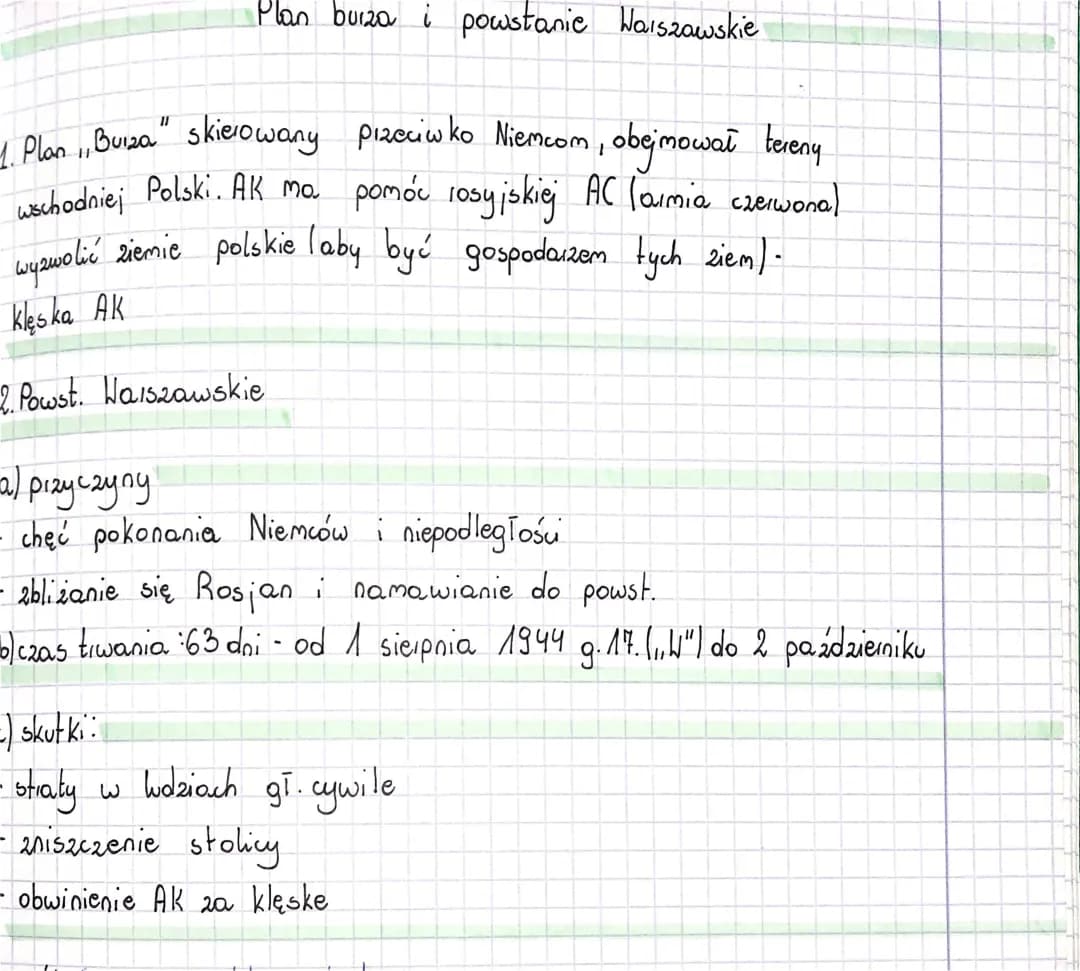 Plan burza i powstanie Warszawskie
1. Plan „Burza" skierowany przeciwko Niemcom, obejmował tereny
wschodniej Polski. AK ma pomóc rosyjskiej AC (armia czerwona)
wyzwolić ziemie polskie (aby być gospodarzem tych ziem).
klęska AK
2. Powst. Warszawskie
a) przyczyny
- chęć pokonania Niemców i niepodległości
- zbliżanie się Rosjan i namawianie do powst.
b) czas trwania : 63 dni - od 1 sierpnia 1944 g. 17. („W") do 2 październiku
c) skutki:
- straty w ludziach gł. cywile
- zniszczenie stolicy
- obwinienie AK za klęske